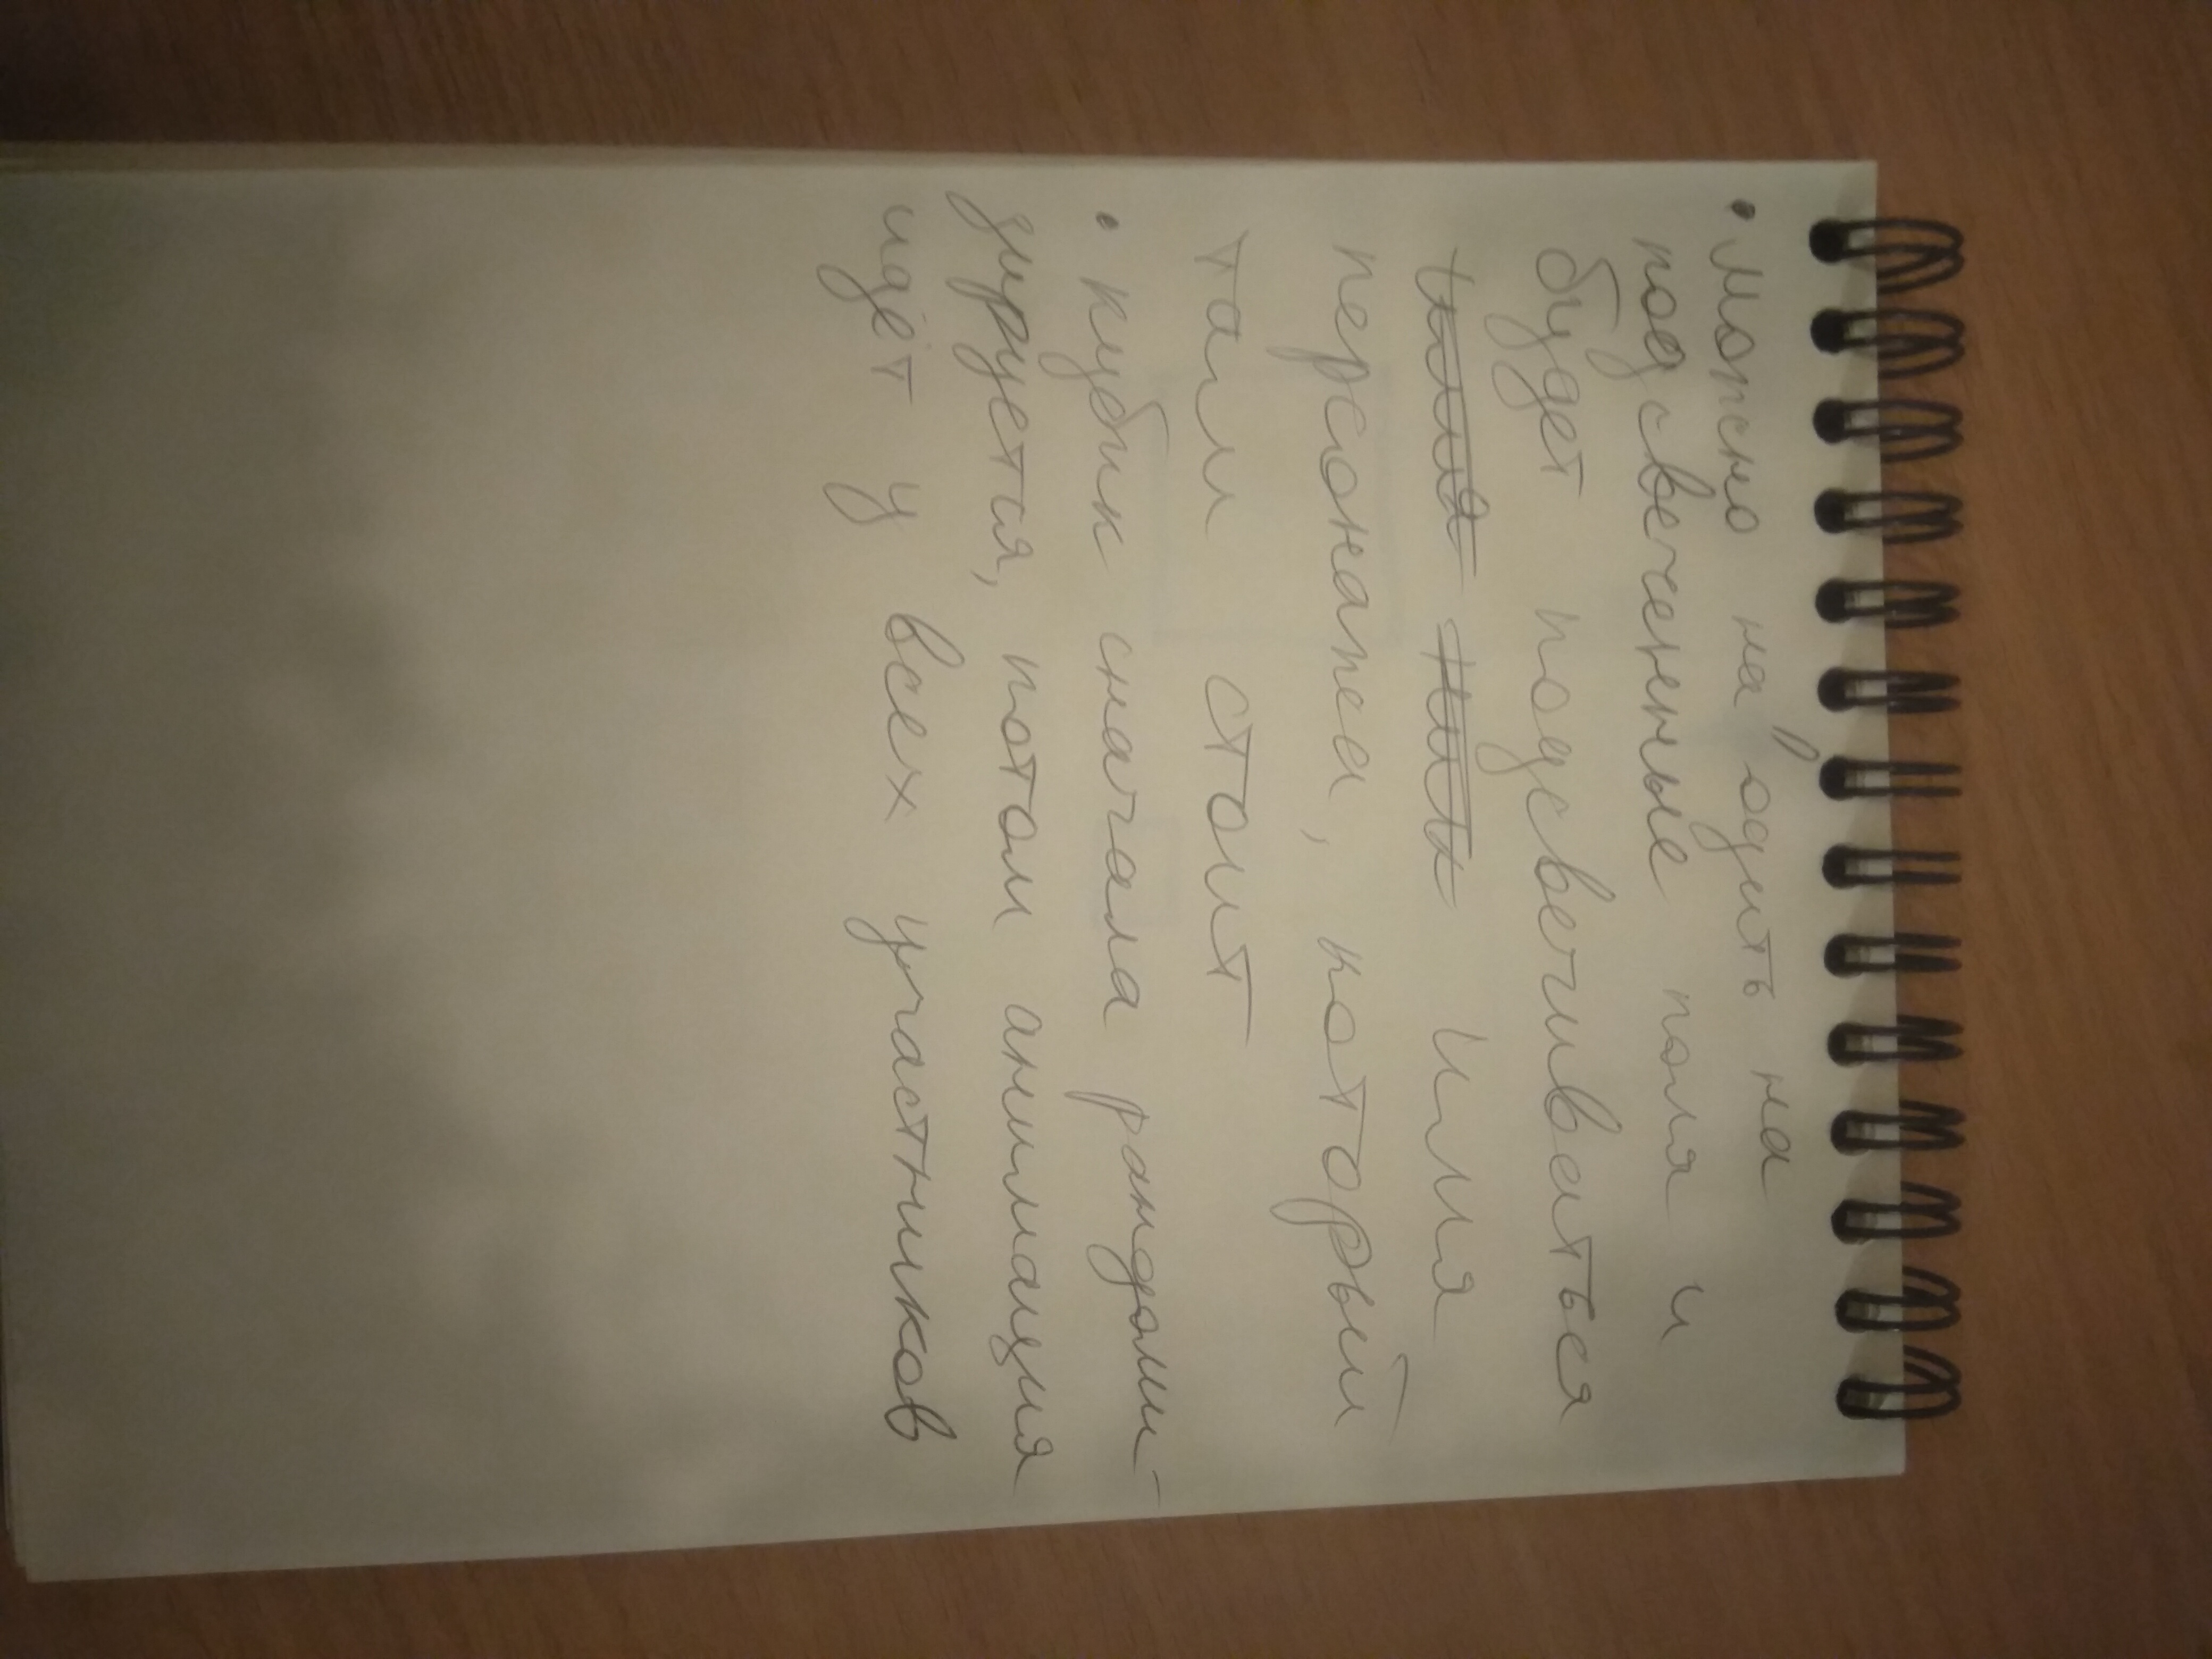 • можно наводить на
подсвеченные поля и
будет подсвечиваться
имя
персонажа, который
там стоит
• кубик сначала рандоми-
зируется, потом анимация
идёт у всех участников